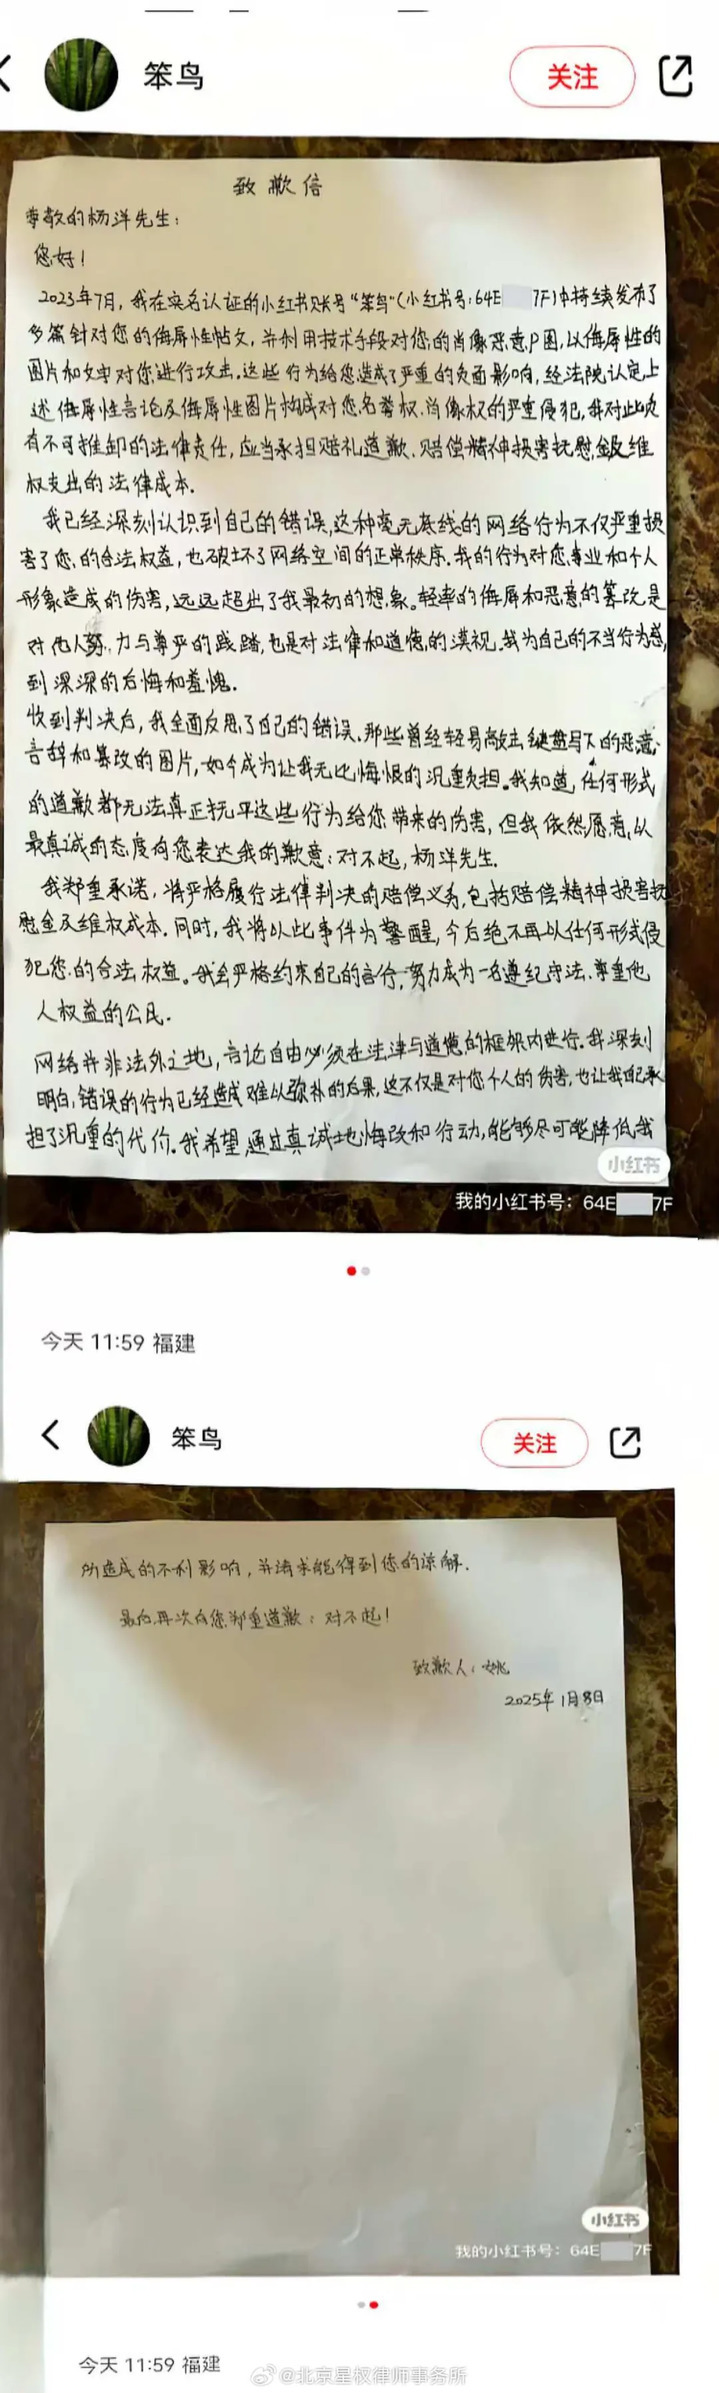 笨鸟
关注
致歉信
尊敬的杨洋先生：
您好！
2023年7月，我在实名认证的小红书账号“笨鸟”（小红书号：64E 7F）中持续发布了
多篇针对您的侮辱性帖文，并利用技术手段对您的肖像恶意P图，以侮辱性的
图片和文字对您进行攻击。这些行为给您造成了严重的负面影响，经法院认定上
述侮辱性言论及侮辱性图片构成对您名誉权、肖像权的严重侵犯，我对此负
有不可推卸的法律责任，应当承担赔礼道歉、赔偿精神损害抚慰金及维
权支出的法律成本。
我已经深刻认识到自己的错误，这种毫无底线的网络行为不仅严重损
害了您的合法权益，也破坏了网络空间的正常秩序。我的行为对您事业和个人
形象造成的伤害，远远超出了我最初的想象。轻率的侮辱和恶意的篡改是
对他人努力与尊严的践踏，也是对法律和道德的漠视。我为自己的不当行为感
到深深的后悔和羞愧。
收到判决后，我全面反思了自己的错误。那些曾经轻易敲击键盘写下的恶意
言辞和篡改的图片，如今成为让我无比悔恨的沉重负担。我知道，任何形式
的道歉都无法真正抚平这些行为给您带来的伤害，但我依然愿意以
最真诚的态度向您表达我的歉意：对不起，杨洋先生。
我郑重承诺，将严格履行法律判决的赔偿义务，包括赔偿精神损害抚
慰金及维权成本。同时，我将以此事件为警醒，今后绝不再以任何形式侵
犯您的合法权益。我会严格约束自己的言行，努力成为一名遵纪守法、尊重他
人权益的公民。
网络并非法外之地，言论自由必须在法律与道德的框架内进行。我深刻
明白，错误的行为已经造成难以弥补的后果，这不仅是对您个人的伤害，也让我自己承
担了沉重的代价。我希望通过真诚地悔改和行动，能够尽可能降低我
小红书
我的小红书号：64E 7F
今天 11:59 福建
笨鸟
关注
所造成的不利影响，并请求能得到您的谅解。
最后再次向您郑重道歉：对不起！
致歉人：姚
2025年1月8日
小红书
我的小红书号：64E 7F
今天 11:59 福建
@北京星权律师事务所